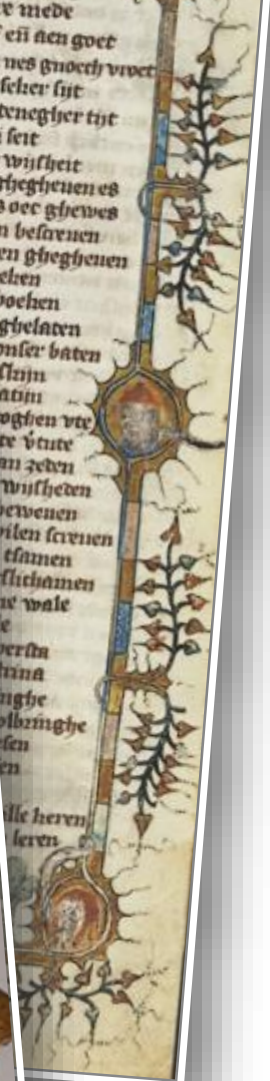 re mede
eñ aen goet
nes gnoech vroet
seker sijt
tenegher tijt
seit
wijsheit
ghegheuen es
s oec ghewes
n bescreuen
en ghegheuen
eken
boeken
ghelaten
onser baten
skijn
atijn
oghen vte
te v̄tute
an zeden
wijsheden
beweuen
vilen screuen
tsamen
slichamen
ne wale
le
versta
trina
inghe
olbringhe
esen
en
alle heren
leren